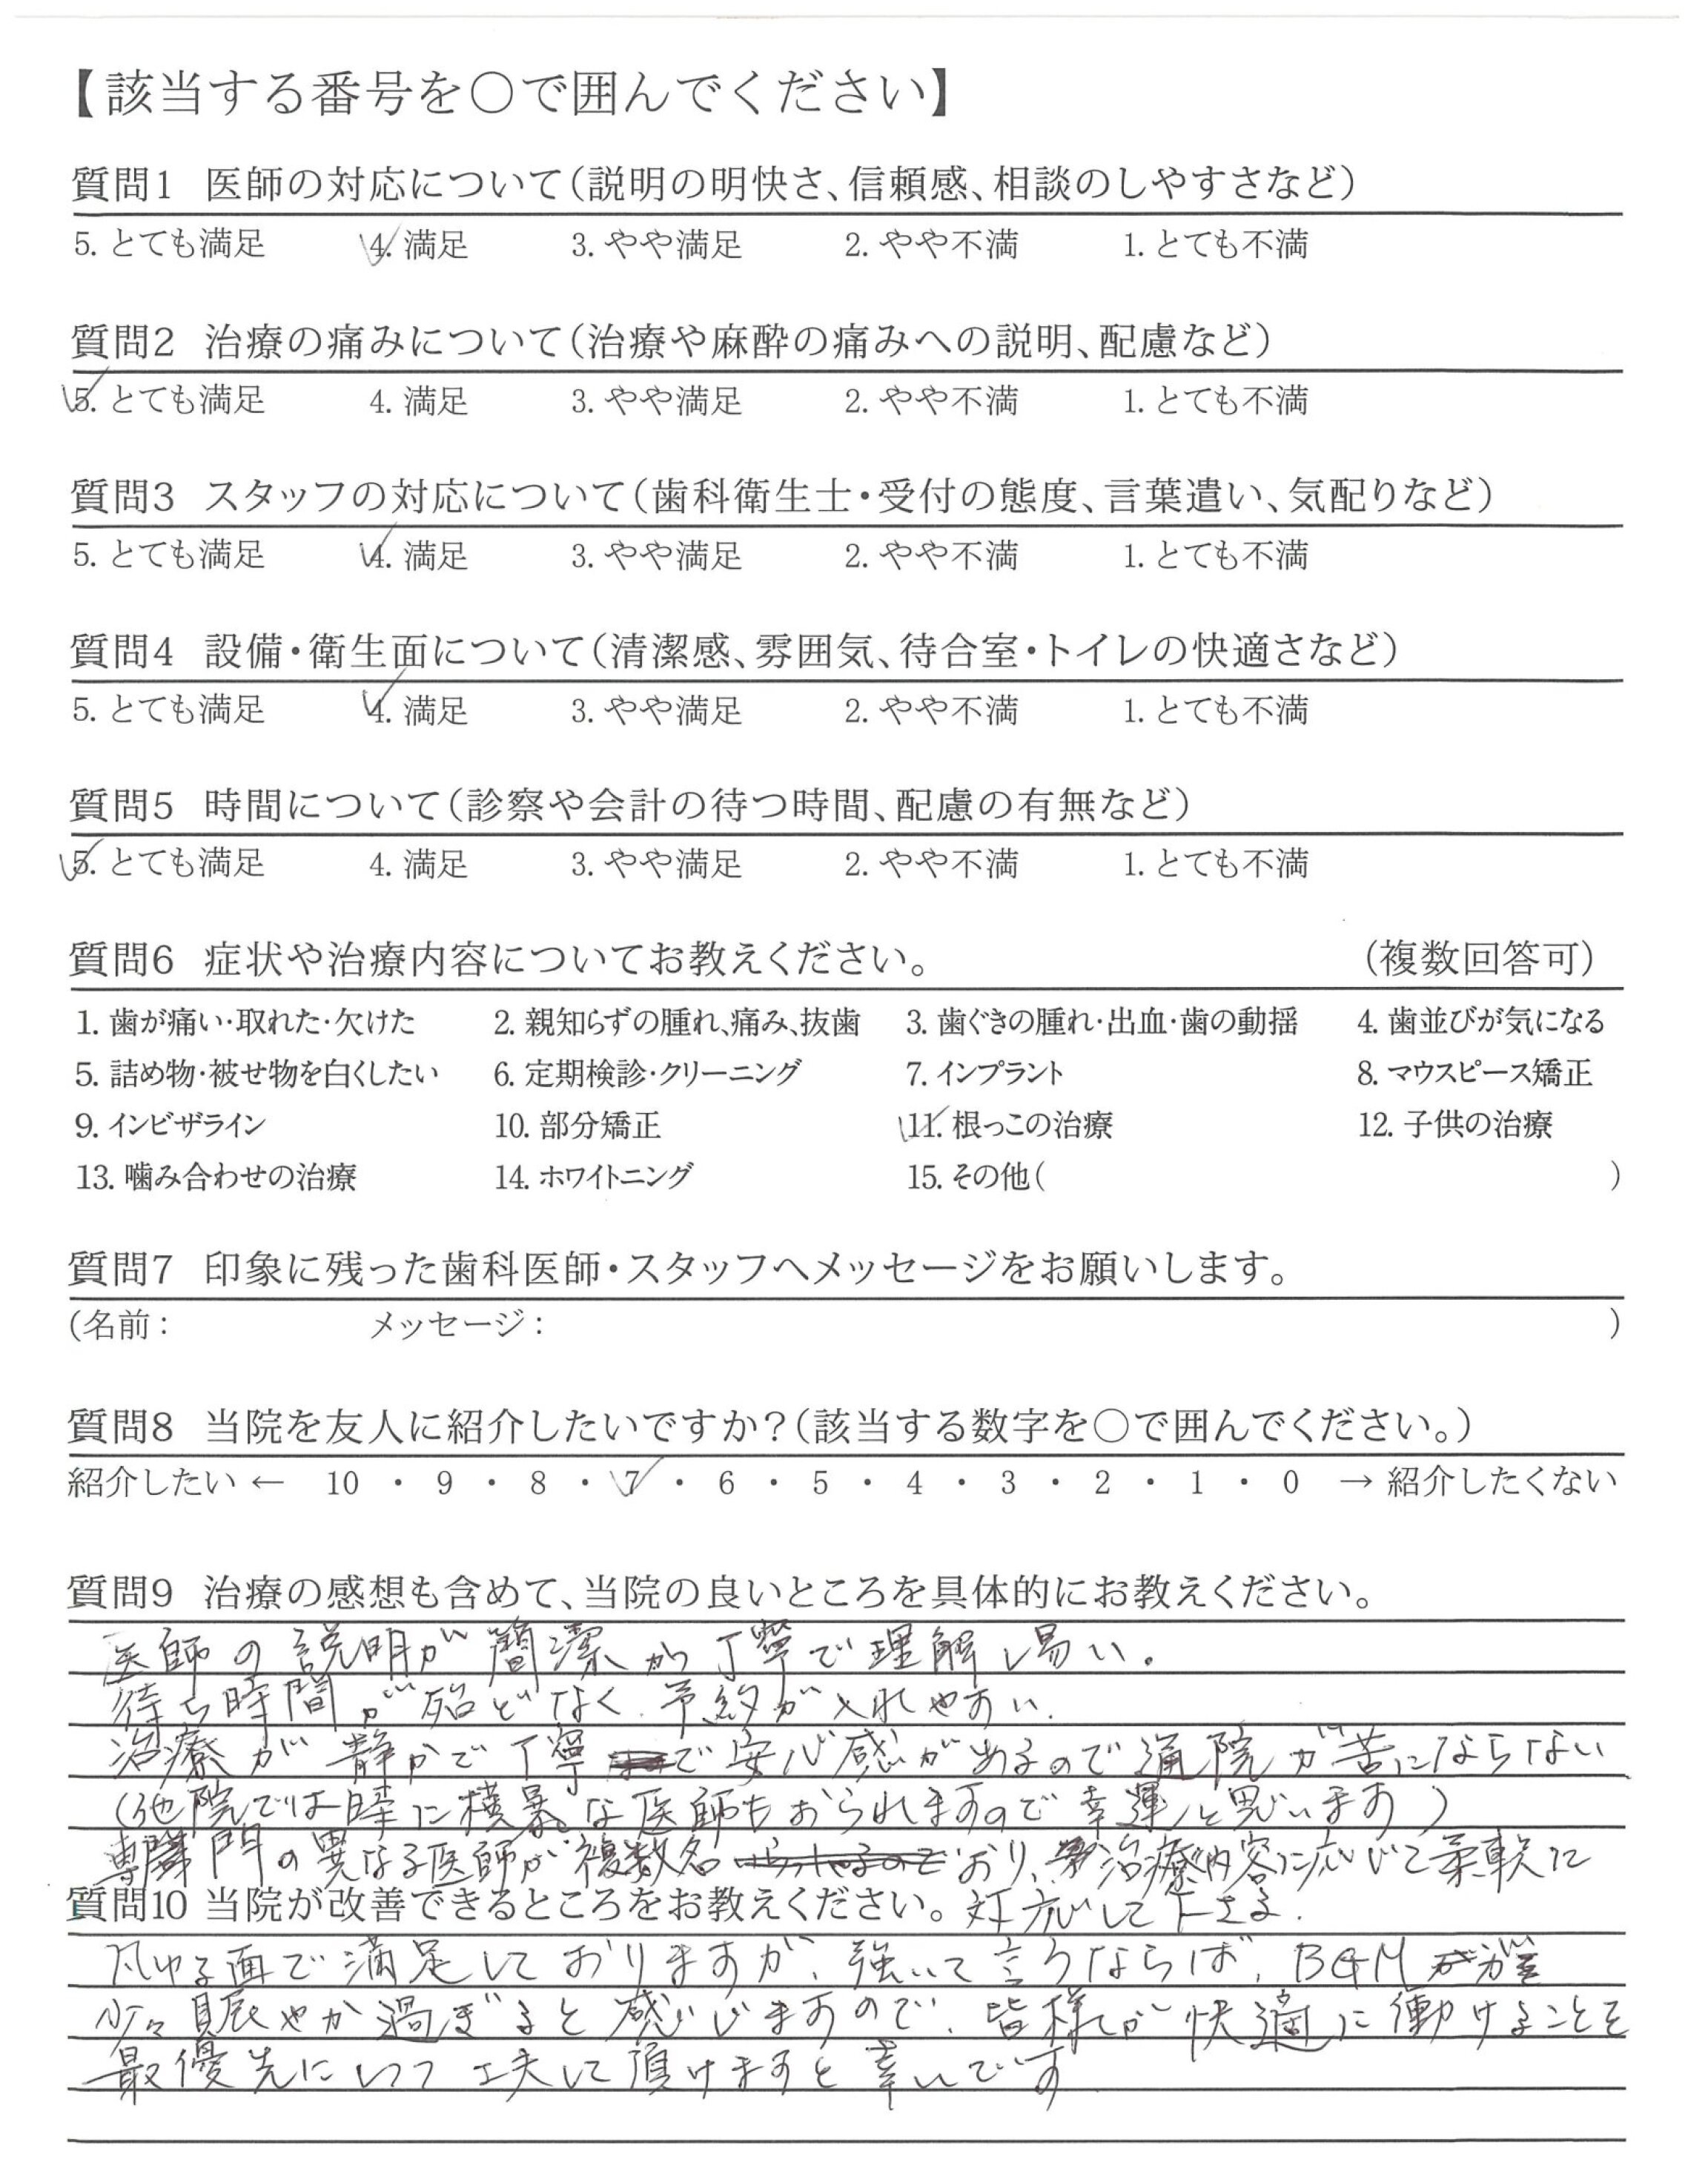 【該当する番号を○で囲んでください】
質問1 医師の対応について(説明の明快さ、信頼感、相談のしやすさなど)
5. とても満足 4. 満足 3. やや満足 2. やや不満 1. とても不満
質問2 治療の痛みについて(治療や麻酔の痛みへの説明、配慮など)
5. とても満足 4. 満足 3. やや満足 2. やや不満 1. とても不満
質問3 スタッフの対応について(歯科衛生士・受付の態度、言葉遣い、気配りなど)
5. とても満足 4. 満足 3. やや満足 2. やや不満 1. とても不満
質問4 設備・衛生面について(清潔感、雰囲気、待合室・トイレの快適さなど)
5. とても満足 4. 満足 3. やや満足 2. やや不満 1. とても不満
質問5 時間について(診察や会計の待つ時間、配慮の有無など)
5. とても満足 4. 満足 3. やや満足 2. やや不満 1. とても不満
質問6 症状や治療内容についてお教えください。 (複数回答可)
1. 歯が痛い・取れた・欠けた 2. 親知らずの腫れ、痛み、抜歯 3. 歯ぐきの腫れ・出血・歯の動揺 4. 歯並びが気になる
5. 詰め物・被せ物を白くしたい 6. 定期検診・クリーニング 7. インプラント 8. マウスピース矯正
9. インビザライン 10. 部分矯正 11. 根っこの治療 12. 子供の治療
13. 噛み合わせの治療 14. ホワイトニング 15. その他( )
質問7 印象に残った歯科医師・スタッフへメッセージをお願いします。
(名前: メッセージ: )
質問8 当院を友人に紹介したいですか?(該当する数字を○で囲んでください。)
紹介したい ← 10 ・ 9 ・ 8 ・ 7 ・ 6 ・ 5 ・ 4 ・ 3 ・ 2 ・ 1 ・ 0 → 紹介したくない
質問9 治療の感想も含めて、当院の良いところを具体的にお教えください。
医師の説明が簡潔かつ丁寧で理解し易い。
待ち時間が殆どなく、予約が入れやすい.
治療が静かで丁寧で安心感があるので通院が苦にならない
(他院では時に横暴な医師もおられますので幸運と思います)
専門の異なる医師が複数名おり、治療内容に応じて柔軟に
質問10 当院が改善できるところをお教えください。 対応して下さる.
凡ゆる面で満足しておりますが、強いて言うならば、BGMが
少々賑やか過ぎると感じますので、皆様が快適に働けることを
最優先にしつつ工夫して頂けますと幸いです